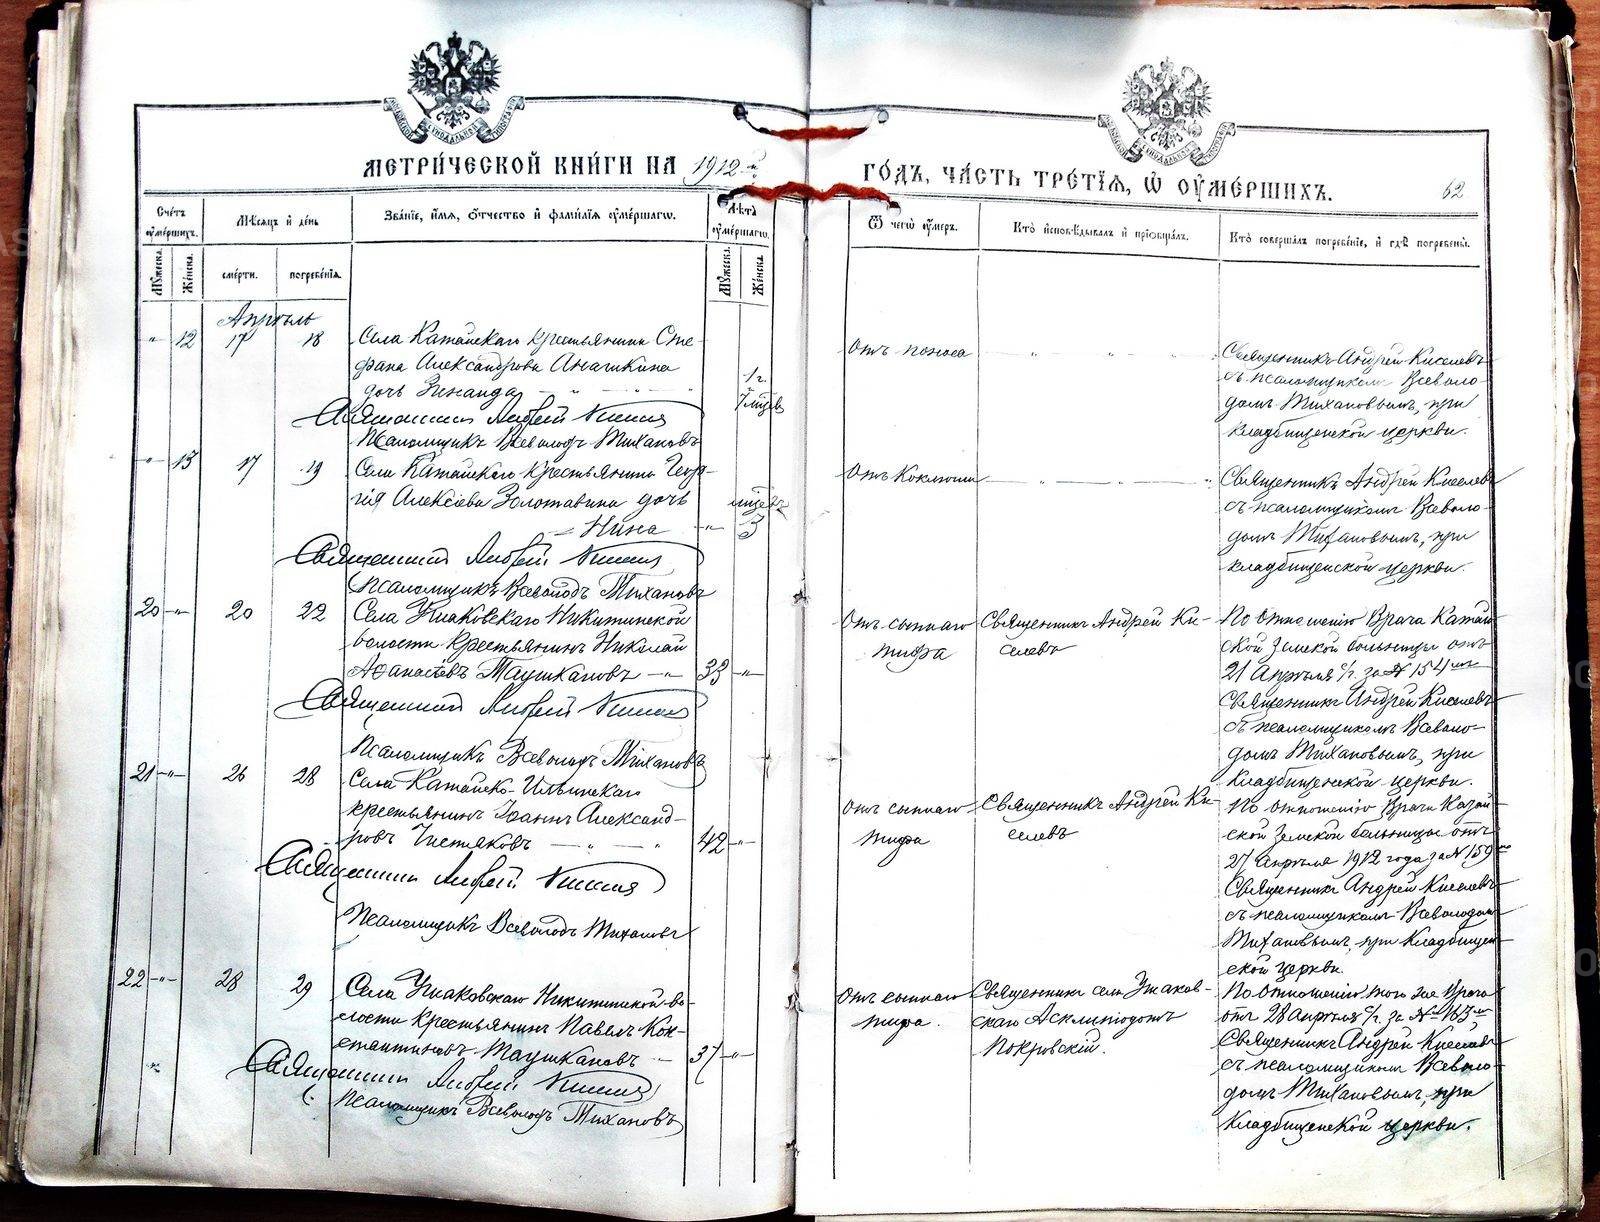 МЕТРИ́ЧЕСКОЙ КНИ́ГИ НА 1912 й
ГО́ДЪ, ЧА́СТЬ ТРЕ́ТІЯ, Ѡ҆ ОУ҆МЕ́РШИХЪ.
62
Сче́тъ оу҆ме́ршихъ.
Мѣсяцъ и҆ де́нь
Зва́ніе, и҆́мя, ѻ҆́тчество и҆ фами́лія оу҆ме́ршагѡ.
Лѣта̀ оу҆ме́ршагѡ.
Ѿ чегѡ̀ оу҆́меръ.
Кто̀ и҆сповѣ́дывалъ и҆ пріѡбща́лъ.
Кто̀ соверша́лъ погребе́ніе, и҆ гдѣ̀ погребены̀.
Му́жеска.
Же́нска.
сме́рти.
погребе́нія.
Му́жеска.
Же́нска.
Апрѣль
" 12 17 18
Села Катайскаго крестьянина Сте-
фана Александрова Анашкина
дочь Зинаида
1 г.
7 мцев
Священникъ Андрей Киселевъ
Псаломщикъ Всеволодъ Тихановъ
Отъ поноса
Священникъ Андрей Киселевъ
съ псаломщикомъ Всеволо-
домъ Тихановымъ, при
кладбищенской церкви.
" 13 17 19
Села Катайскаго крестьянина Геор-
гія Алексіева Золотавина дочь
Нина
мцевъ
3
Священникъ Андрей Киселевъ
Псаломщикъ Всеволодъ Тихановъ
Отъ коклюша
Священникъ Андрей Киселевъ
съ псаломщикомъ Всеволо-
домъ Тихановымъ, при
кладбищенской церкви.
20 " 20 22
Села Ушаковскаго Никитинской
волости крестьянинъ Николай
Афанасіевъ Таушкановъ
33 "
Священникъ Андрей Киселевъ
Псаломщикъ Всеволодъ Тихановъ
Отъ сыпнаго
тифа
Священникъ Андрей Ки-
селевъ
По отношенію Врача Катай-
ской Земской больницы отъ
21 Апрѣля с/г. за № 154
Священникъ Андрей Киселевъ
съ псаломщикомъ Всеволо-
домъ Тихановымъ, при
кладбищенской церкви.
21 " 26 28
Села Катайско-Ильинскаго
крестьянинъ Іоаннъ Александ-
ровъ Чистяковъ
42 "
Священникъ Андрей Киселевъ
Псаломщикъ Всеволодъ Тихановъ
Отъ сыпнаго
тифа
Священникъ Андрей Ки-
селевъ
По отношенію Врача Катай-
ской Земской больницы отъ
27 Апрѣля 1912 года за № 159
Священникъ Андрей Киселевъ
съ псаломщикомъ Всеволодомъ
Тихановымъ, при кладбищен-
ской церкви.
22 " 28 29
Села Ушаковскаго Никитинской во-
лости крестьянинъ Павелъ Кон-
стантиновъ Таушкановъ
37 "
Священникъ Андрей Киселевъ
Псаломщикъ Всеволодъ Тихановъ
Отъ сыпнаго
тифа.
Священникъ села Ушаков-
скаго Асклипіодотъ
Покровскій.
По отношенію того же Врача
отъ 28 Апрѣля с/г. за № 163
Священникъ Андрей Киселевъ
съ псаломщикомъ Всеволо-
домъ Тихановымъ, при
кладбищенской церкви.